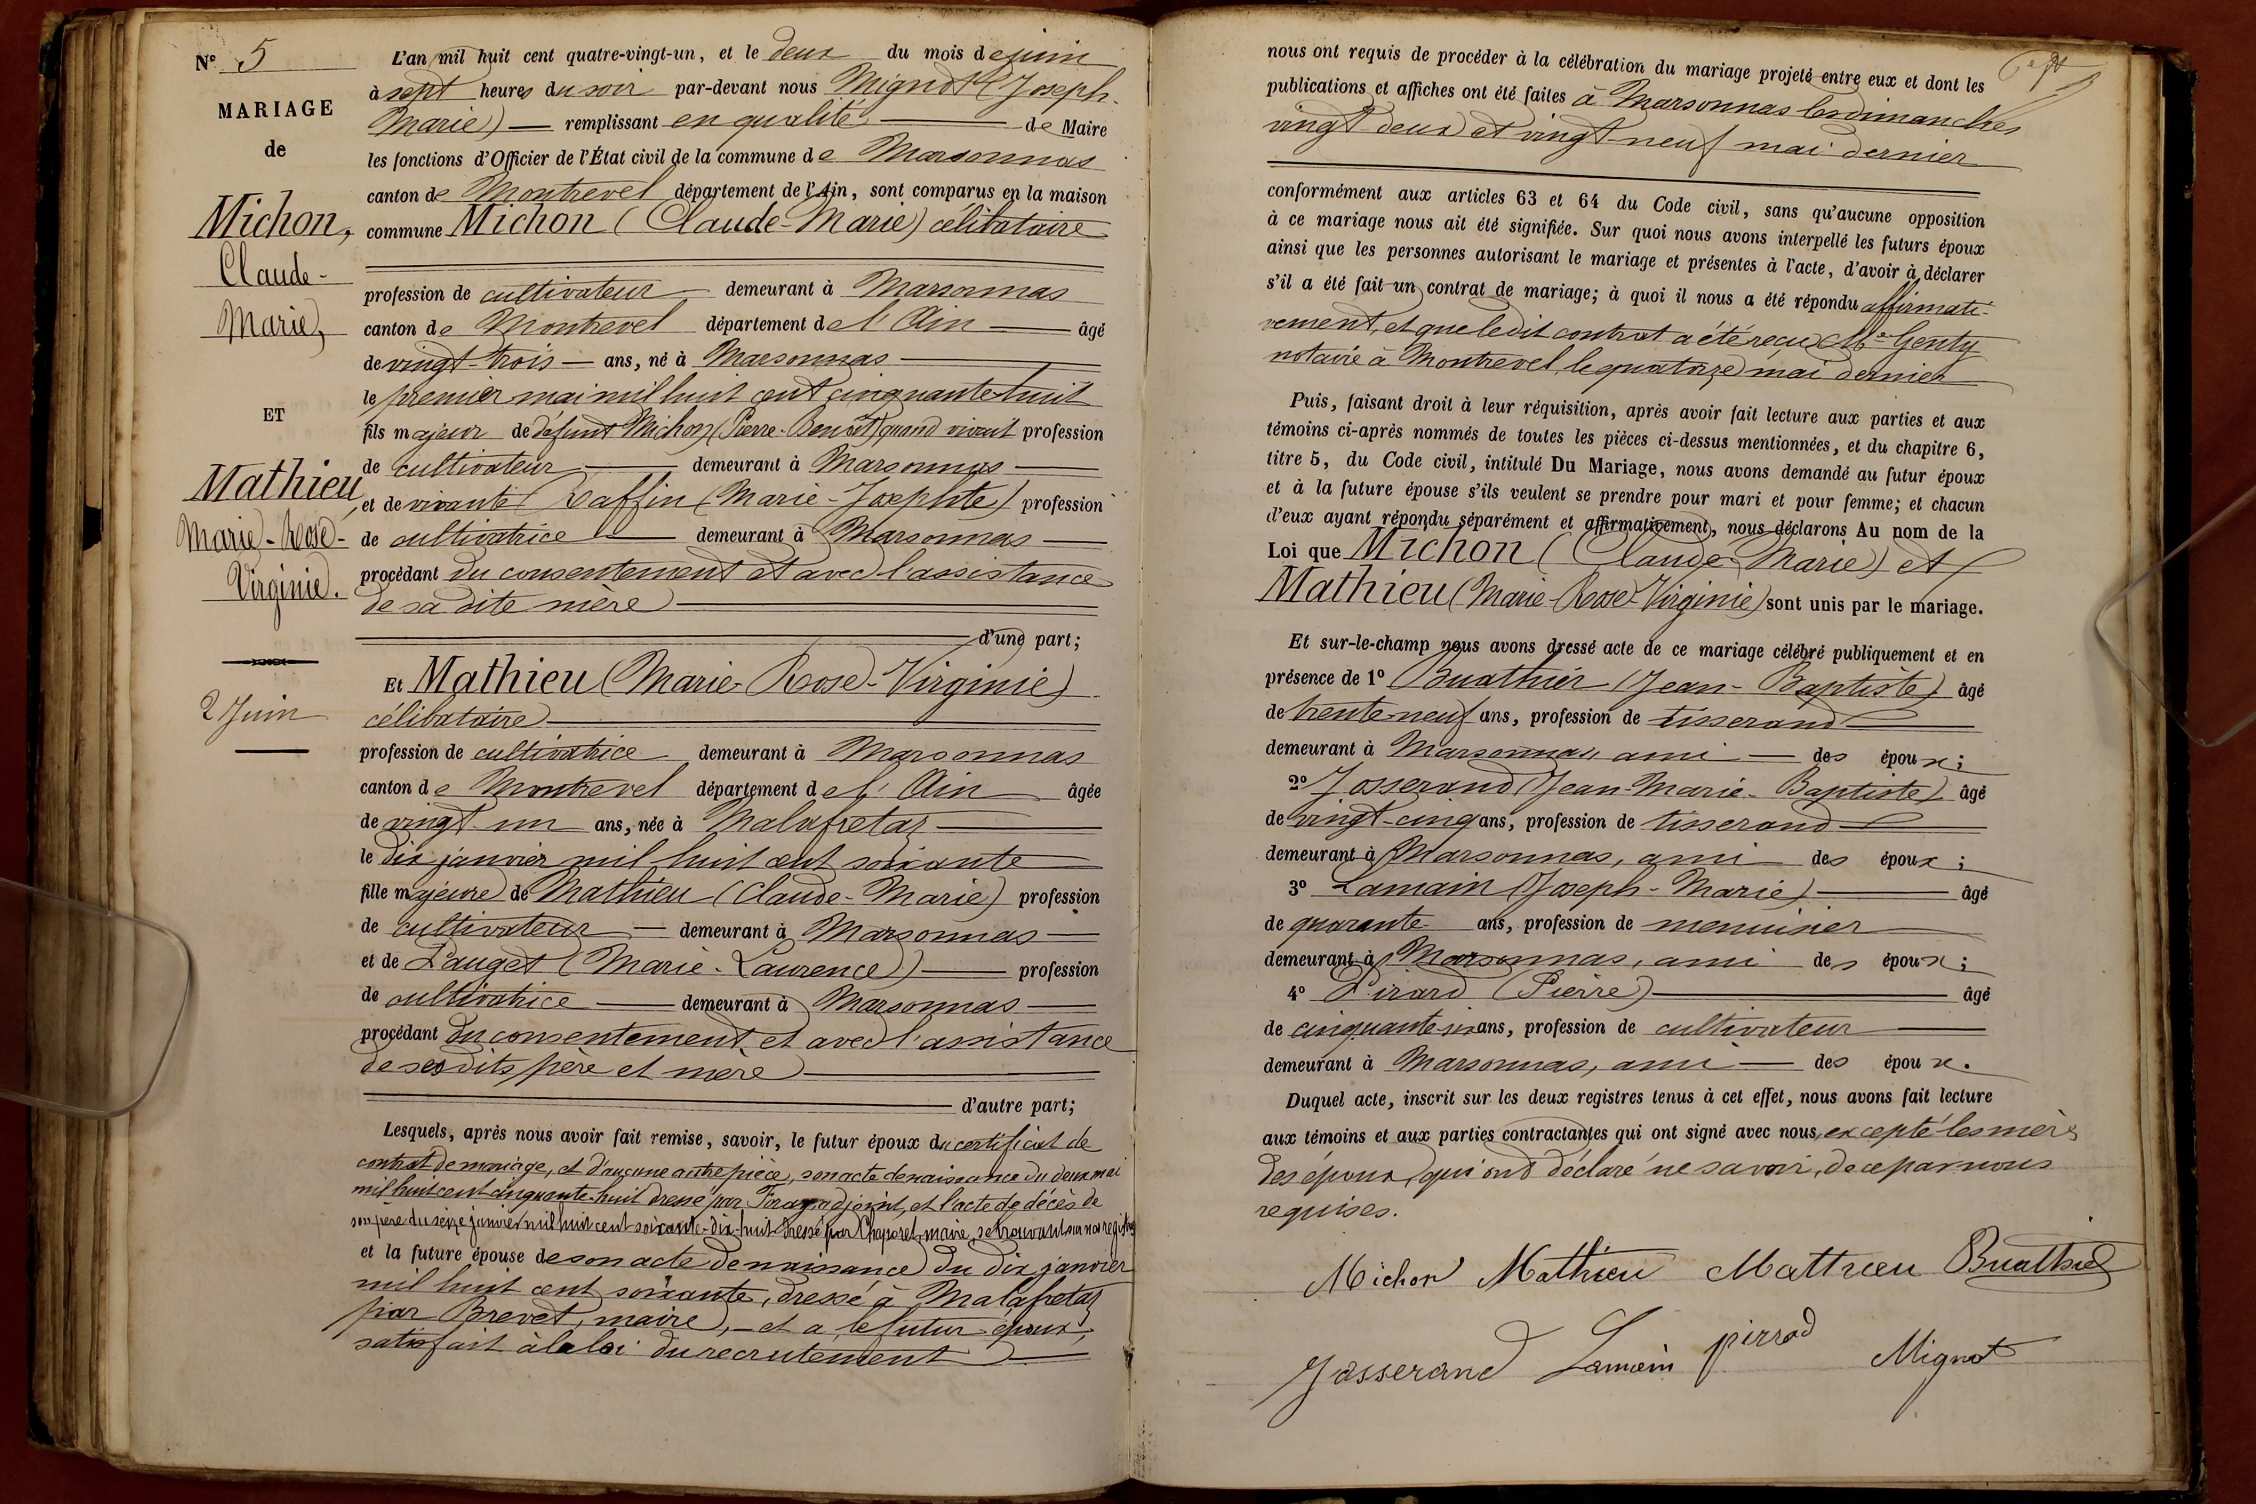 N° 5
MARIAGE
de
Michon,
Claude-
Marie,
ET
Mathieu,
Marie-Rose-
Virginie.
2 Juin
L'an mil huit cent quatre-vingt-un, et le deux du mois de juin
à sept heures du soir par-devant nous Mignot (Joseph-
Marie) remplissant en qualité de Maire
les fonctions d'Officier de l'État civil de la commune de Marsonnas
canton de Montrevel département de l'Ain, sont comparus en la maison
commune Michon (Claude-Marie) célibataire
profession de cultivateur demeurant à Marsonnas
canton de Montrevel département de l'Ain âgé
de vingt-trois ans, né à Marsonnas
le premier mai mil huit cent cinquante-huit
fils majeur de défunt Michon (Pierre-Benoît) quand vivait profession
de cultivateur demeurant à Marsonnas
et de vivante Raffin (Marie-Josephte) profession
de cultivatrice demeurant à Marsonnas
procédant du consentement et avec l'assistance
de sa dite mère
d'une part;
Et Mathieu (Marie-Rose-Virginie)
célibataire
profession de cultivatrice demeurant à Marsonnas
canton de Montrevel département de l'Ain âgée
de vingt-un ans, née à Malafretaz
le dix janvier mil huit cent soixante
fille majeure de Mathieu (Claude-Marie) profession
de cultivateur demeurant à Marsonnas
et de Pauget (Marie-Laurence) profession
de cultivatrice demeurant à Marsonnas
procédant du consentement et avec l'assistance
de ses dits père et mère
d'autre part;
Lesquels, après nous avoir fait remise, savoir, le futur époux du certificat de
contrat de mariage, et d'aucune autre pièce, son acte de naissance du deux mai
mil huit cent cinquante-huit dressé par adjoint, et l'acte de décès de
son père du seize janvier mil huit cent soixante-dix-huit dressé par Chaporel, maire, se trouvant sur nos registres
et la future épouse de son acte de naissance du dix janvier
mil huit cent soixante, dressé à Malafretaz
par Brevet, maire, - et a le futur époux,
satisfait à la loi du recrutement
nous ont requis de procéder à la célébration du mariage projeté entre eux et dont les
publications et affiches ont été faites à Marsonnas les dimanches
vingt-deux et vingt-neuf mai dernier
conformément aux articles 63 et 64 du Code civil, sans qu'aucune opposition
à ce mariage nous ait été signifiée. Sur quoi nous avons interpellé les futurs époux
ainsi que les personnes autorisant le mariage et présentes à l'acte, d'avoir à déclarer
s'il a été fait un contrat de mariage; à quoi il nous a été répondu affirmati-
vement, et que ledit contrat a été reçu Me Genty
notaire à Montrevel, le quatorze mai dernier
Puis, faisant droit à leur réquisition, après avoir fait lecture aux parties et aux
témoins ci-après nommés de toutes les pièces ci-dessus mentionnées, et du chapitre 6,
titre 5, du Code civil, intitulé Du Mariage, nous avons demandé au futur époux
et à la future épouse s'ils veulent se prendre pour mari et pour femme; et chacun
d'eux ayant répondu séparément et affirmativement, nous déclarons Au nom de la
Loi que Michon (Claude-Marie) et
Mathieu (Marie-Rose-Virginie) sont unis par le mariage.
Et sur-le-champ nous avons dressé acte de ce mariage célébré publiquement et en
présence de 1° Buathier (Jean-Baptiste) âgé
de trente-neuf ans, profession de tisserand
demeurant à Marsonnas, ami des époux;
2° Josserand (Jean-Marie-Baptiste) âgé
de vingt-cinq ans, profession de tisserand
demeurant à Marsonnas, ami des époux;
3° Lamain (Joseph-Marie) âgé
de quarante ans, profession de menuisier
demeurant à Marsonnas, ami des époux;
4° Pirard (Pierre) âgé
de cinquante-six ans, profession de cultivateur
demeurant à Marsonnas, ami des époux.
Duquel acte, inscrit sur les deux registres tenus à cet effet, nous avons fait lecture
aux témoins et aux parties contractantes qui ont signé avec nous, excepté les mères
des époux, qui ont déclaré ne savoir, de ce par nous
requises.
Michon Mathieu Mathieu Buathier
Josserand Lamain pirrod Mignot